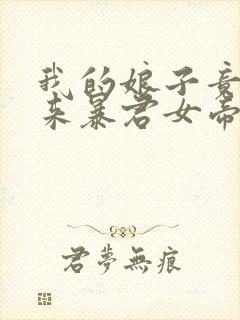 我的娘子竟
来暴君女帝
君夢無痕